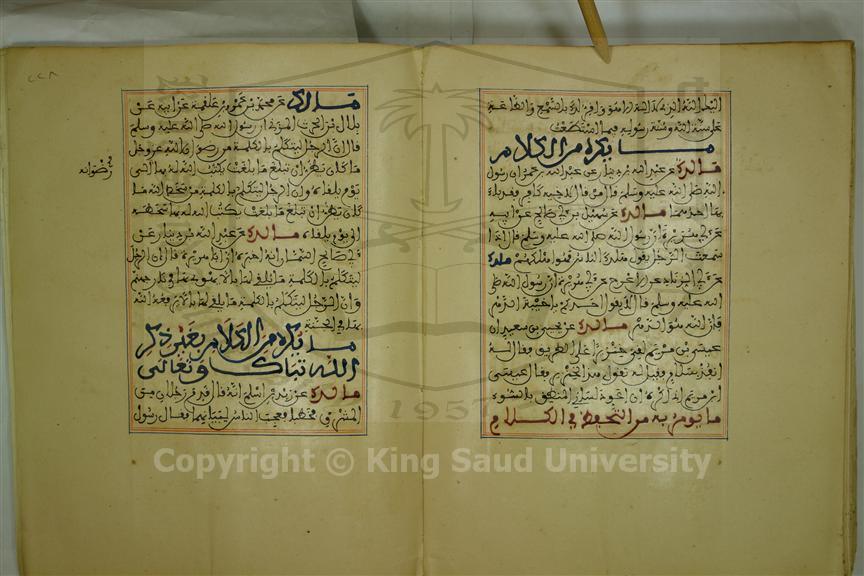 اليك الله الذي لا اله الا هو وافر لك بالسمع والطاعة
على سنة الله وسنة رسوله فيما استطعت
ما يكره من الكلام
مالك عن عبد الله بن دينار عن عبد الله بن عمر ان رسول
الله صلى الله عليه وسلم قال من قال لاخيه كافر فقد باء
بها احدهما مالك عن سهيل بن ابي صالح عن ابيه
عن ابي هريرة ان رسول الله صلى الله عليه وسلم قال اذا
سمعت الرجل يقول هلك الناس فهو اهلكهم مالك
عن ابي الزناد عن الاعرج عن ابي هريرة ان رسول الله صلى
الله عليه وسلم قال لا يقول احدكم يا خيبة الدهر
فان الله هو الدهر مالك عن يحيى بن سعيد ان
عيسى بن مريم لقي خنزيرا على الطريق فقال له
انفذ بسلام فقيل له تقول هذا لخنزير فقال عيسى
ابن مريم اني اخاف ان اعود لساني المنطق بالسوء
ما يؤمر به من التحفظ في الكلام
٢٢٨
مالك عن محمد بن عمرو بن علقمة عن ابيه عن
بلال بن الحرث المزني ان رسول الله صلى الله عليه وسلم
قال ان الرجل ليتكلم بالكلمة من رضوان الله عز وجل
رضوانه
ما كان يظن ان تبلغ ما بلغت يكتب الله له بها الى
يوم يلقاه وان الرجل ليتكلم بالكلمة من سخط الله ما
كان يظن ان تبلغ ما بلغت يكتب الله له بها سخطه
الى يوم يلقاه مالك عن عبد الله بن دينار عن
ابي صالح السمان انه اخبره ان ابا هريرة قال ان الرجل
ليتكلم بالكلمة ما يلقي لها بالا يهوي بها في نار جهنم
وان الرجل ليتكلم بالكلمة ما يلقي لها بالا يرفعه الله
بها في الجنة
ما يكره من الكلام بغير ذكر
الله تبارك وتعالى
مالك عن زيد بن اسلم انه قال قدم رجلان من
المشرق فخطبا فعجب الناس لبيانهما فقال رسول
1957
Copyright © King Saud University